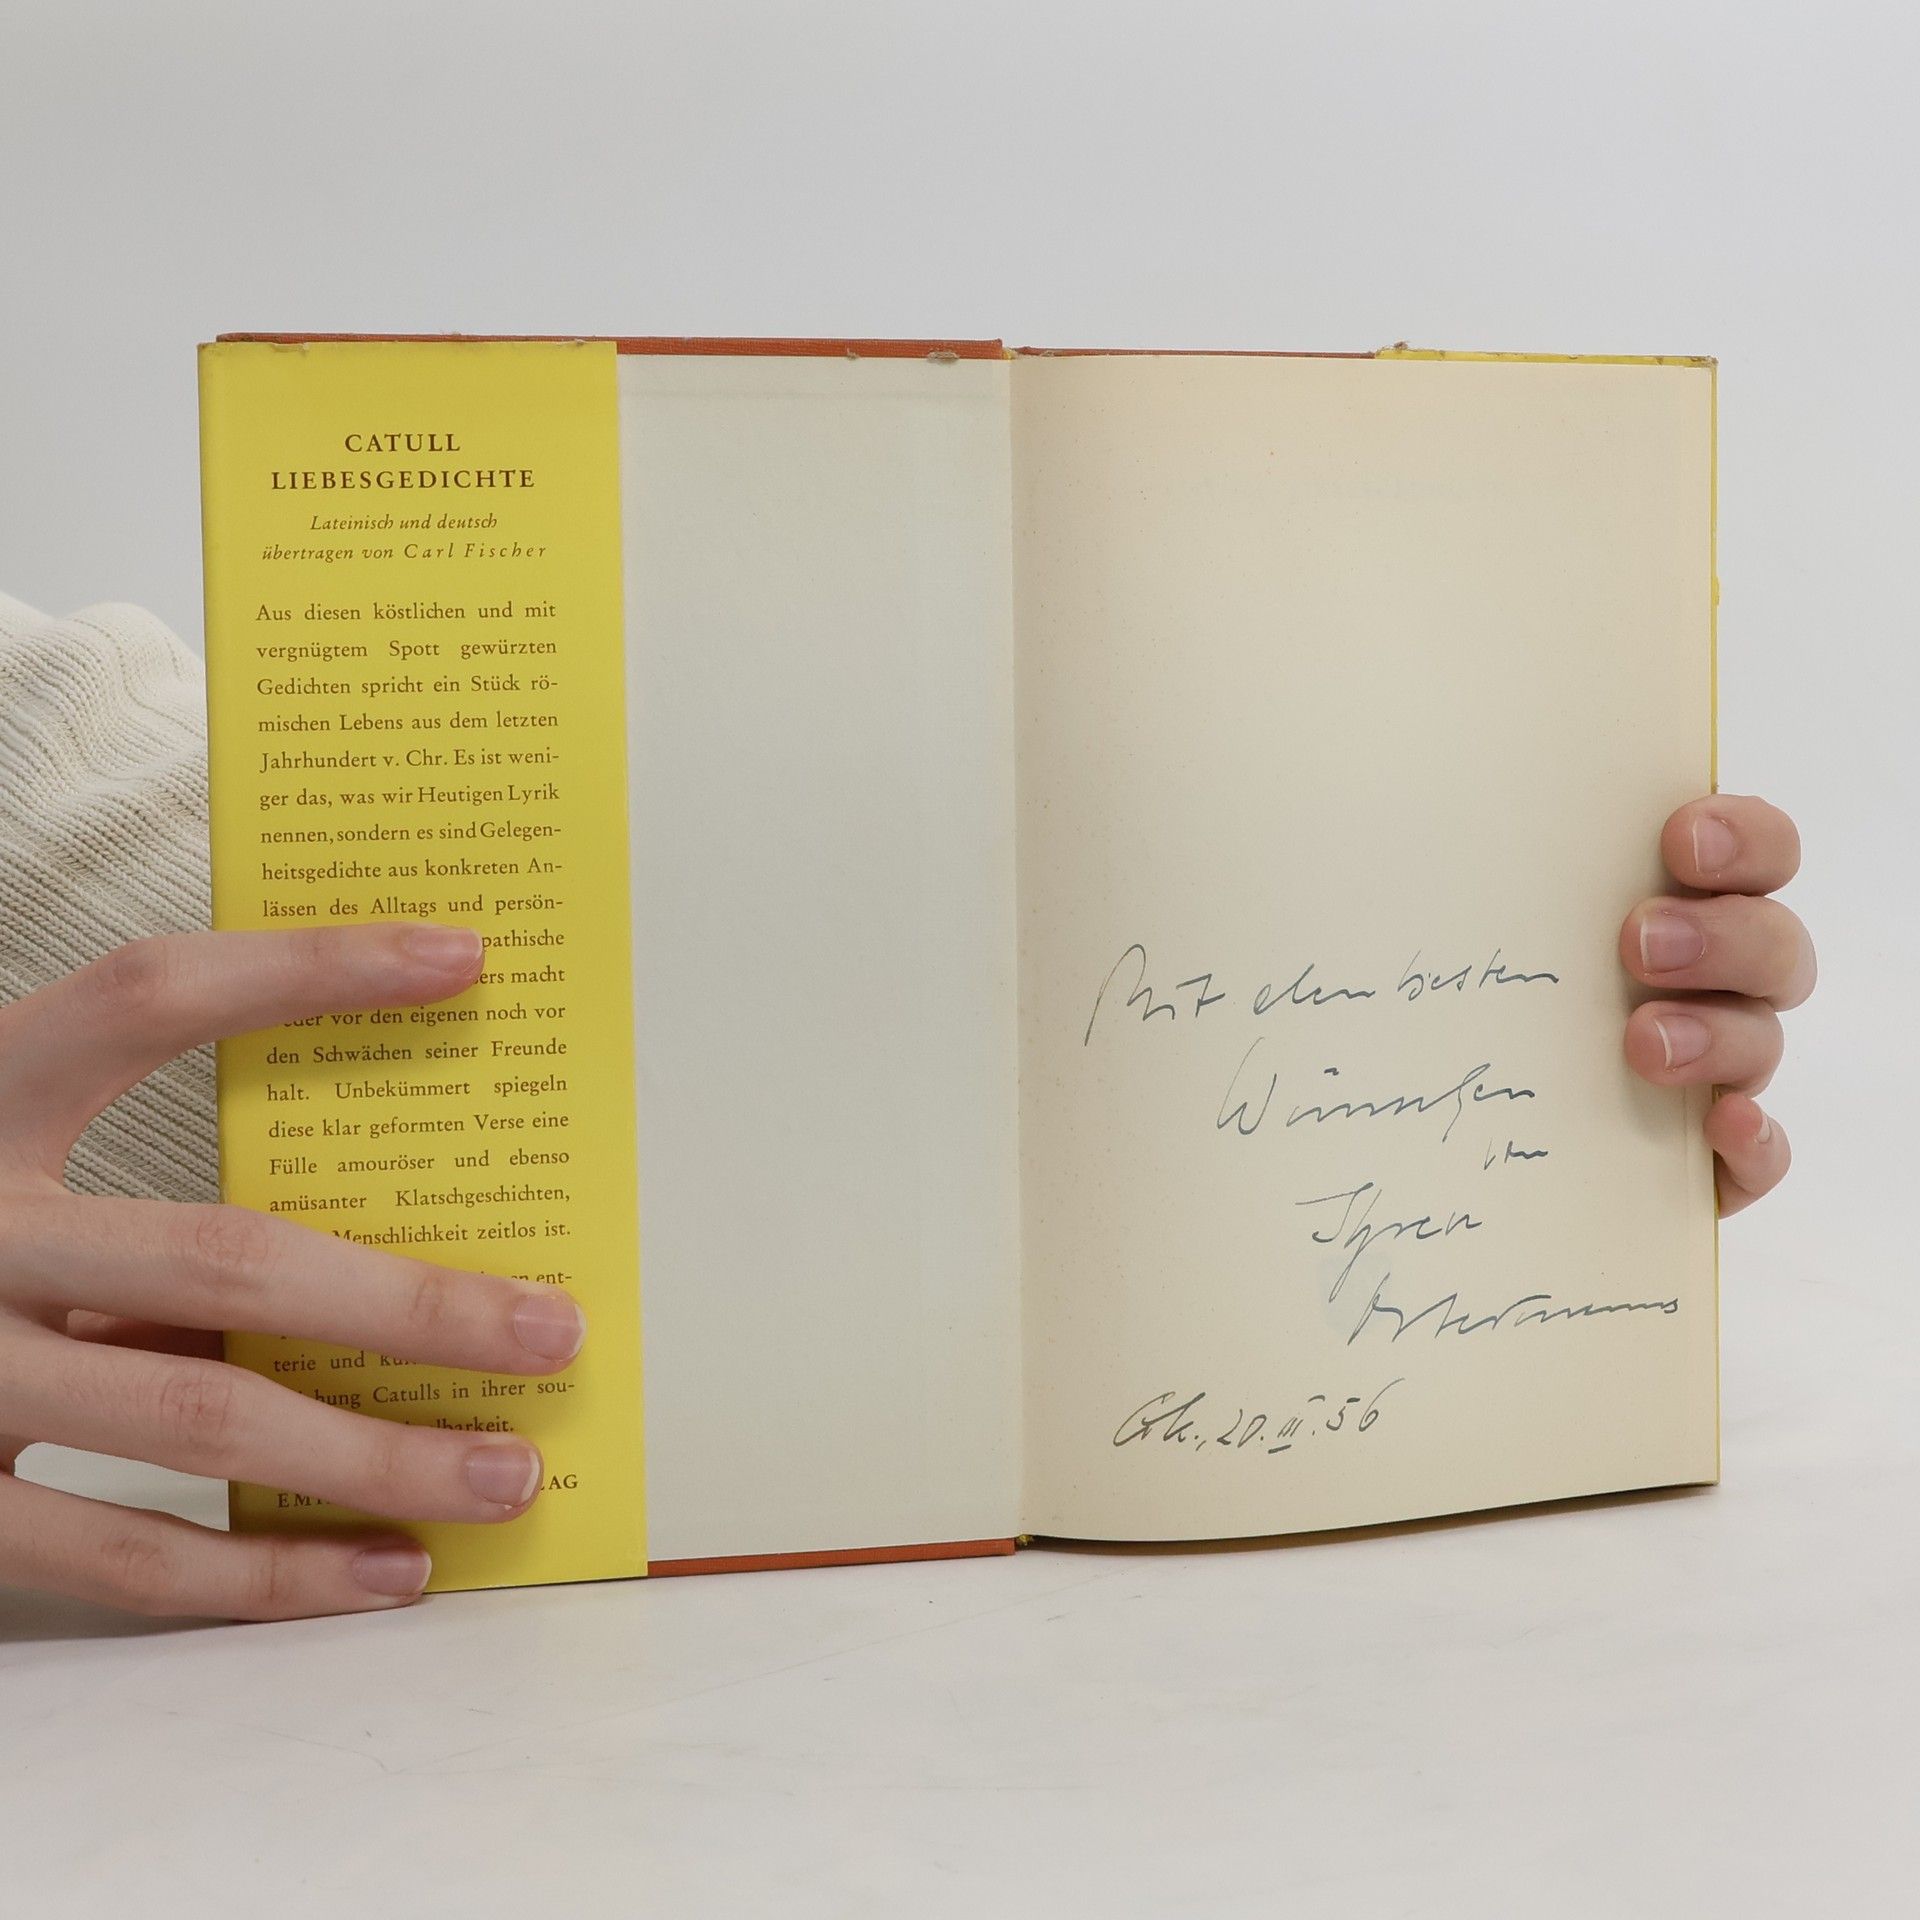 CATULL
LIEBESGEDICHTE
Lateinisch und deutsch
übertragen von Carl Fischer
Aus diesen köstlichen und mit
vergnügtem Spott gewürzten
Gedichten spricht ein Stück rö-
mischen Lebens aus dem letzten
Jahrhundert v. Chr. Es ist weni-
ger das, was wir Heutigen Lyrik
nennen, sondern es sind Gelegen-
heitsgedichte aus konkreten An-
lässen des Alltags und persön-
pathische
macht
vor den eigenen noch vor
den Schwächen seiner Freunde
halt. Unbekümmert spiegeln
diese klar geformten Verse eine
Fülle amouröser und ebenso
amüsanter Klatschgeschichten,
Menschlichkeit zeitlos ist.
ent-
terie und
Catulls in ihrer sou-
Mit den besten
Wünschen
von
Ihren
20. III. 56